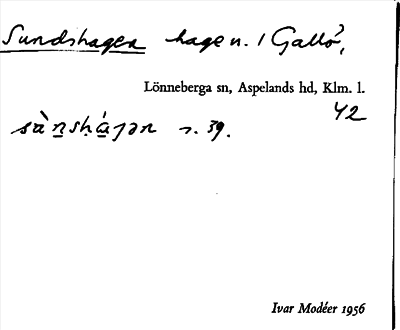 Sundshagen hage n. / Gallö,
Lönneberga sn, Aspelands hd, Klm. l.
42
s. 39.
Ivar Modéer 1956